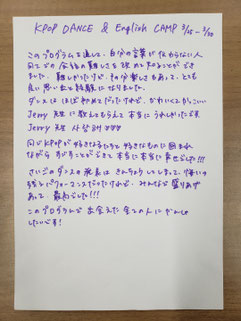 KPOP DANCE & English CAMP
このプログラムを通して、自分の言葉が伝わらない人
同士での会話の難しさを改めて知ることができ
ました。難しかったけど、その分楽しさもあって、とても
良い思い出と経験になりました。
ダンスはほぼ初めてだったけれど、かわいくてかっこいい
Jerry先生に教えてもらえて本当にうれしかったです
Jerry 先生 사랑해요
同じKPOPが好きな子たちと好きなものに囲まれ
ながらすごすことができて本当に幸せでした!!!
さいごのダンスの発表はきんちょうしてしまって、悔いの
残るパフォーマンスだったけれど、みんなで盛りあが
れて、最高でした!!!
このプログラムで出会えた全ての人にかんしゃ
したいです!